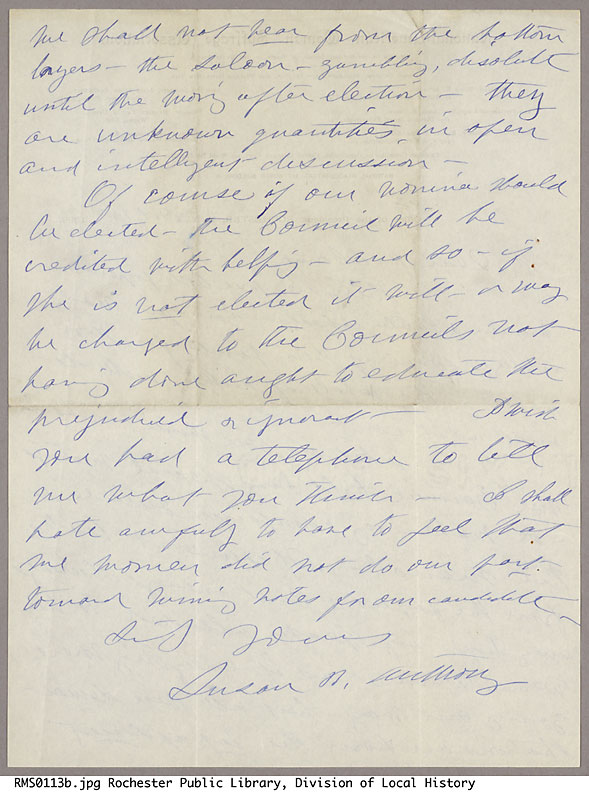 we shall not hear from the bottom
layers – the saloon – gambling, disolute
until the morning after election – they
are unknown quantities in open
and intelligent discussion –
Of course if our nominee should
be elected – the Council will be
credited with helping – and so – if
she is not elected it will – or may
be charged to the Councils not
having done aught to educate the
prejudiced or ignorant – I wish
you had a telephone to tell
me what you think – I shall
hate awfully to have to feel that
we women did not do our part
toward wining votes for our candidate –
yours
Susan B. Anthony
RMS0113b.jpg Rochester Public Library, Division of Local History